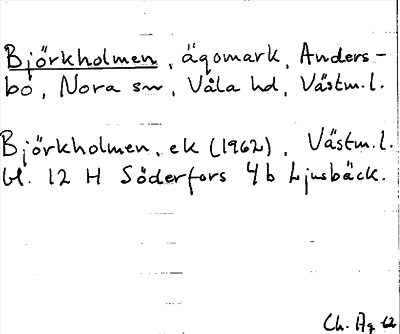 Björkholmen, ägomark, Anders-
bo, Nora sn, Våla hd, Västm.l.
Björkholmen, ek (1962), Västm.l.
bl. 12 H Söderfors 4b Ljusbäck.
Ch. Ag 62